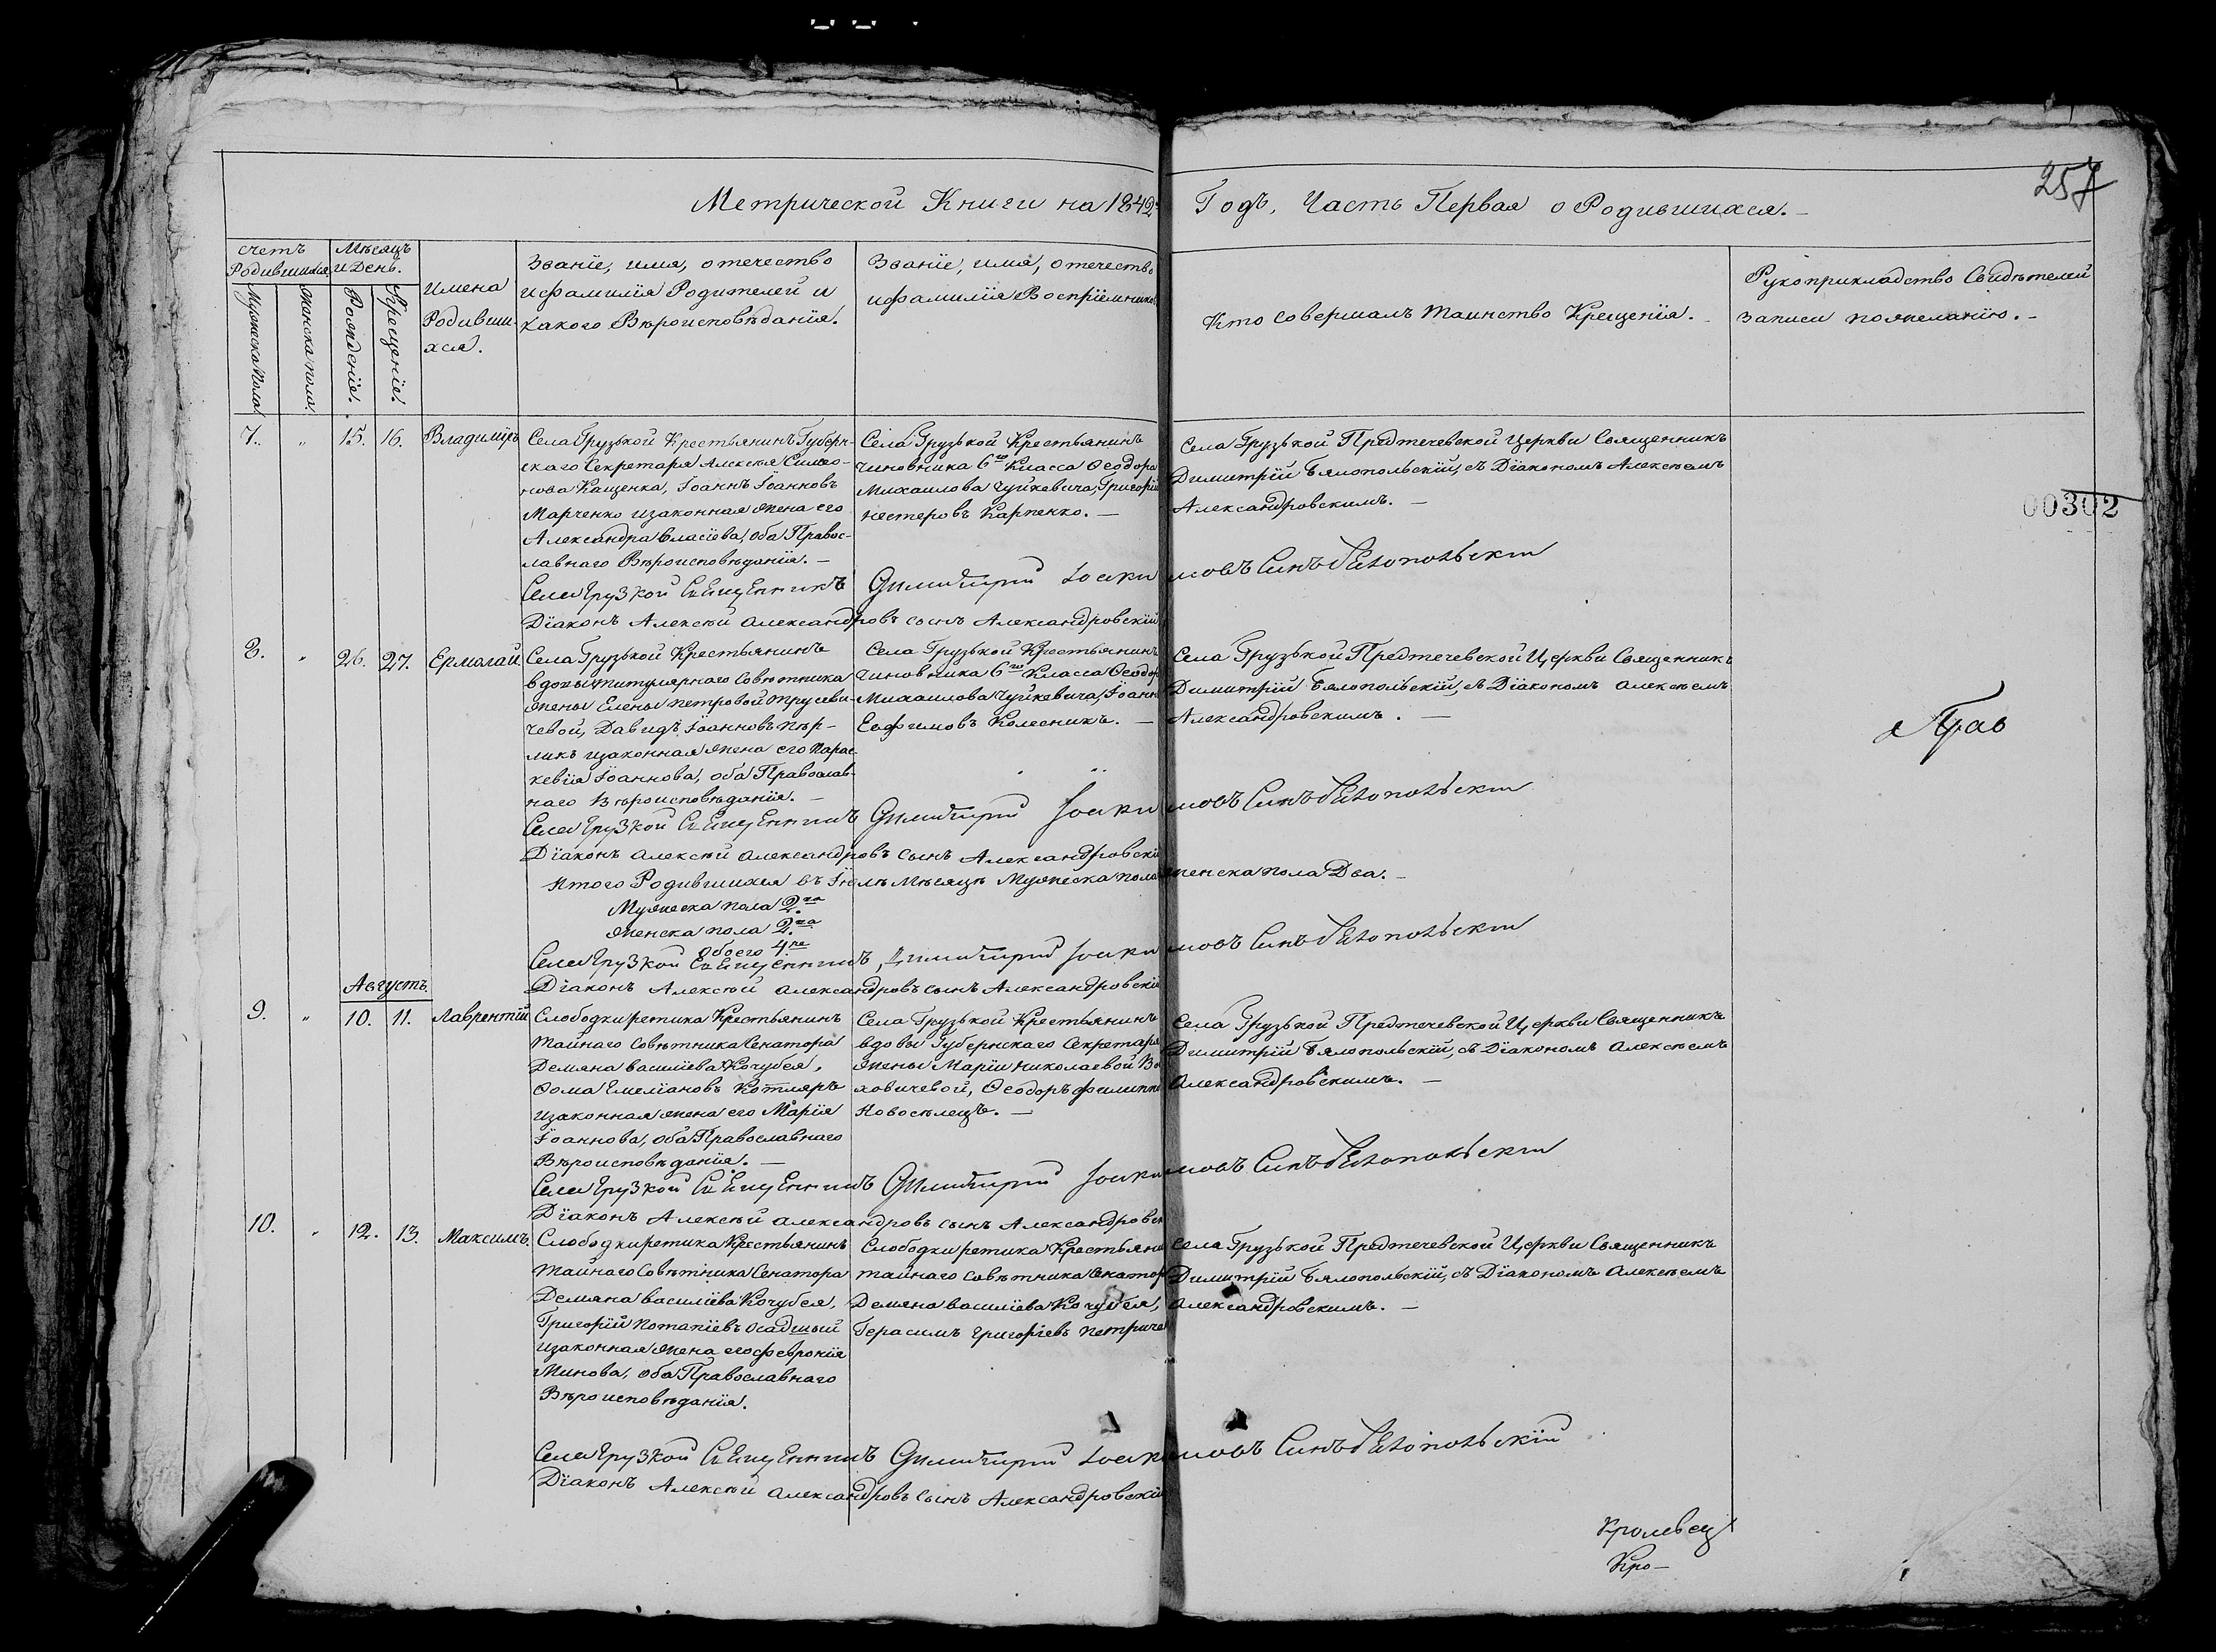 257
Метрической Книги на 1842й Годъ, Часть Первая о Родившихся.
счетъ Родившихся
Мѣсяцъ и День.
Мужеска пола.
Женска пола.
Рожденія.
Крещенія.
Имена
Родивши-
хся.
Званіе, имя, отечество
и фамилія Родителей и
какого Вѣроисповѣданія.
Званіе, имя, отечество
и фамилія Воспріемников
Кто совершалъ таинство Крещенія.
Рукоприкладство Свидѣтелей
записи по желанію.
7. „ 15. 16. Владиміръ
Села Грузькой Крестьянинъ Губерн-
скаго Секретаря Алексѣя Симео-
нова Кащенка, Іоаннъ Іоанновъ
Марченко и законная жена его
Александра Власіева, оба Правос-
лавнаго Вѣроисповѣданія. —
Села Грузькой Крестьянинъ
чиновника 6го Класса Ѳеодора
Михаилова Чуйкевича, Григорій
Нестеровъ Карпенко. —
Села Грузькой Предтечевской Церкви Священникъ
Димитрій Бялопольскій, съ Діакономъ Алексѣемъ
Александровскимъ. —
00302
Села Грузкой Священникъ Димитрий Іоакимовъ Синъ Бялопольский
Діаконъ Алексѣй Александровъ сынъ Александровскій
8. „ 26. 27. Ермолай
Села Грузькой Крестьянинъ
вдовы титулярнаго Совѣтника
жены Елены Петровой Трусеви-
чевой, Давидъ Іоанновъ Пър-
ликъ и законная жена его Парас-
кевія Іоаннова, оба Православ-
наго Вѣроисповѣданія. —
Села Грузькой Крестьянинъ
чиновника 6го Класса Ѳеодор
Михаилова Чуйкевича, Іоанн
Евфимовъ Колесникъ. —
Села Грузькой Предтечевской Церкви Священникъ
Димитрій Бялопольскій, съ Діакономъ Алексѣемъ
Александровскимъ. —
Села Грузкой Священникъ Димитрий Іоакимовъ Синъ Бялопольский
Діаконъ Алексѣй Александровъ сынъ Александровскі
Итого Родившихся въ Іюлѣ Мѣсяцѣ Мужеска пола женска пола Два. —
Мужеска пола 2ва
женска пола 2ва
Обоего 4ре
Села Грузкой Священникъ, Димитрий Іоакимовъ Синъ Бялопольский
Діаконъ Алексѣй Александровъ сынъ Александровскій
Августъ.
9. „ 10. 11. Лаврентій
Слободки Ретика Крестьянинъ
тайнаго Совѣтника Сенатора
Демяна Василіева Кочубея,
Ѳома Емеліановъ Котляръ
и законная жена его Марія
Іоаннова, оба Православнаго
Вѣроисповѣданія. —
Села Грузькой Крестьянинъ
вдовы Губернскаго Секретаря
жены Маріи Николаевой Во
ховичевой, Ѳеодоръ Филиппо
Новоселецъ. —
Села Грузькой Предтечевской Церкви Священникъ
Димитрій Бялопольскій, съ Діакономъ Алексѣемъ
Александровскимъ. —
Села Грузкой Священникъ Димитрий Іоакимовъ Синъ Бялопольский
Діаконъ Алексѣй Александровъ сынъ Александровск
10. „ 12. 13. Максимъ.
Слободки Ретика Крестьянинъ
тайнаго Совѣтника Сенатора
Демяна Василіева Кочубея,
Григорій Потапіевъ Осадшый
и законная жена его Февронія
Минова, оба Православнаго
Вѣроисповѣданія.
Слободки Ретика Крестьяни
тайнаго Совѣтника Сенатор
Демяна Василіева Кочубея,
Герасимъ Григоріевъ Петриче
Села Грузькой Предтечевской Церкви Священникъ
Димитрій Бялопольскій, съ Діакономъ Алексѣемъ
Александровскимъ. —
Села Грузкой Священникъ Димитрий Іоакимовъ Синъ Бялопольскій
Діаконъ Алексѣй Александровъ сынъ Александровскій
Кролевец
Кро—